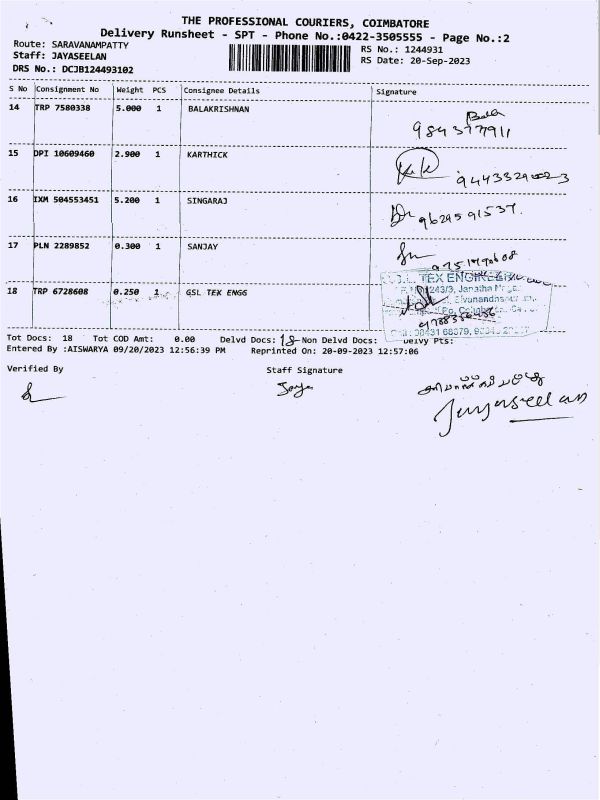 THE PROFESSIONAL COURIERS, COIMBATORE
Delivery Runsheet - SPT - Phone No.:0422-3505555 - Page No.:2
Route: SARAVANAMPATTY
RS No.: 1244931
Staff: JAYASEELAN
RS Date: 20-Sep-2023
DRS No.: DCJB124493102
S No Consignment No Weight PCS Consignee Details Signature
14 TRP 7580338 5.000 1 BALAKRISHNAN
Bala
15 DPI 10609460 2.900 1 KARTHICK
16 IXM 504553451 5.200 1 SINGARAJ
9629591537.
17 PLN 2289852 0.300 1 SANJAY
18 TRP 6728608 0.250 1 GSL TEK ENGG
TEX
243/3, Janatha
Tot Docs: 18 Tot COD Amt: 0.00 Delvd Docs: 18 Non Delvd Docs: Delvy Pts:
Entered By :AISWARYA 09/20/2023 12:56:39 PM Reprinted On: 20-09-2023 12:57:06
Verified By Staff Signature
Jaya
Jayaseelan